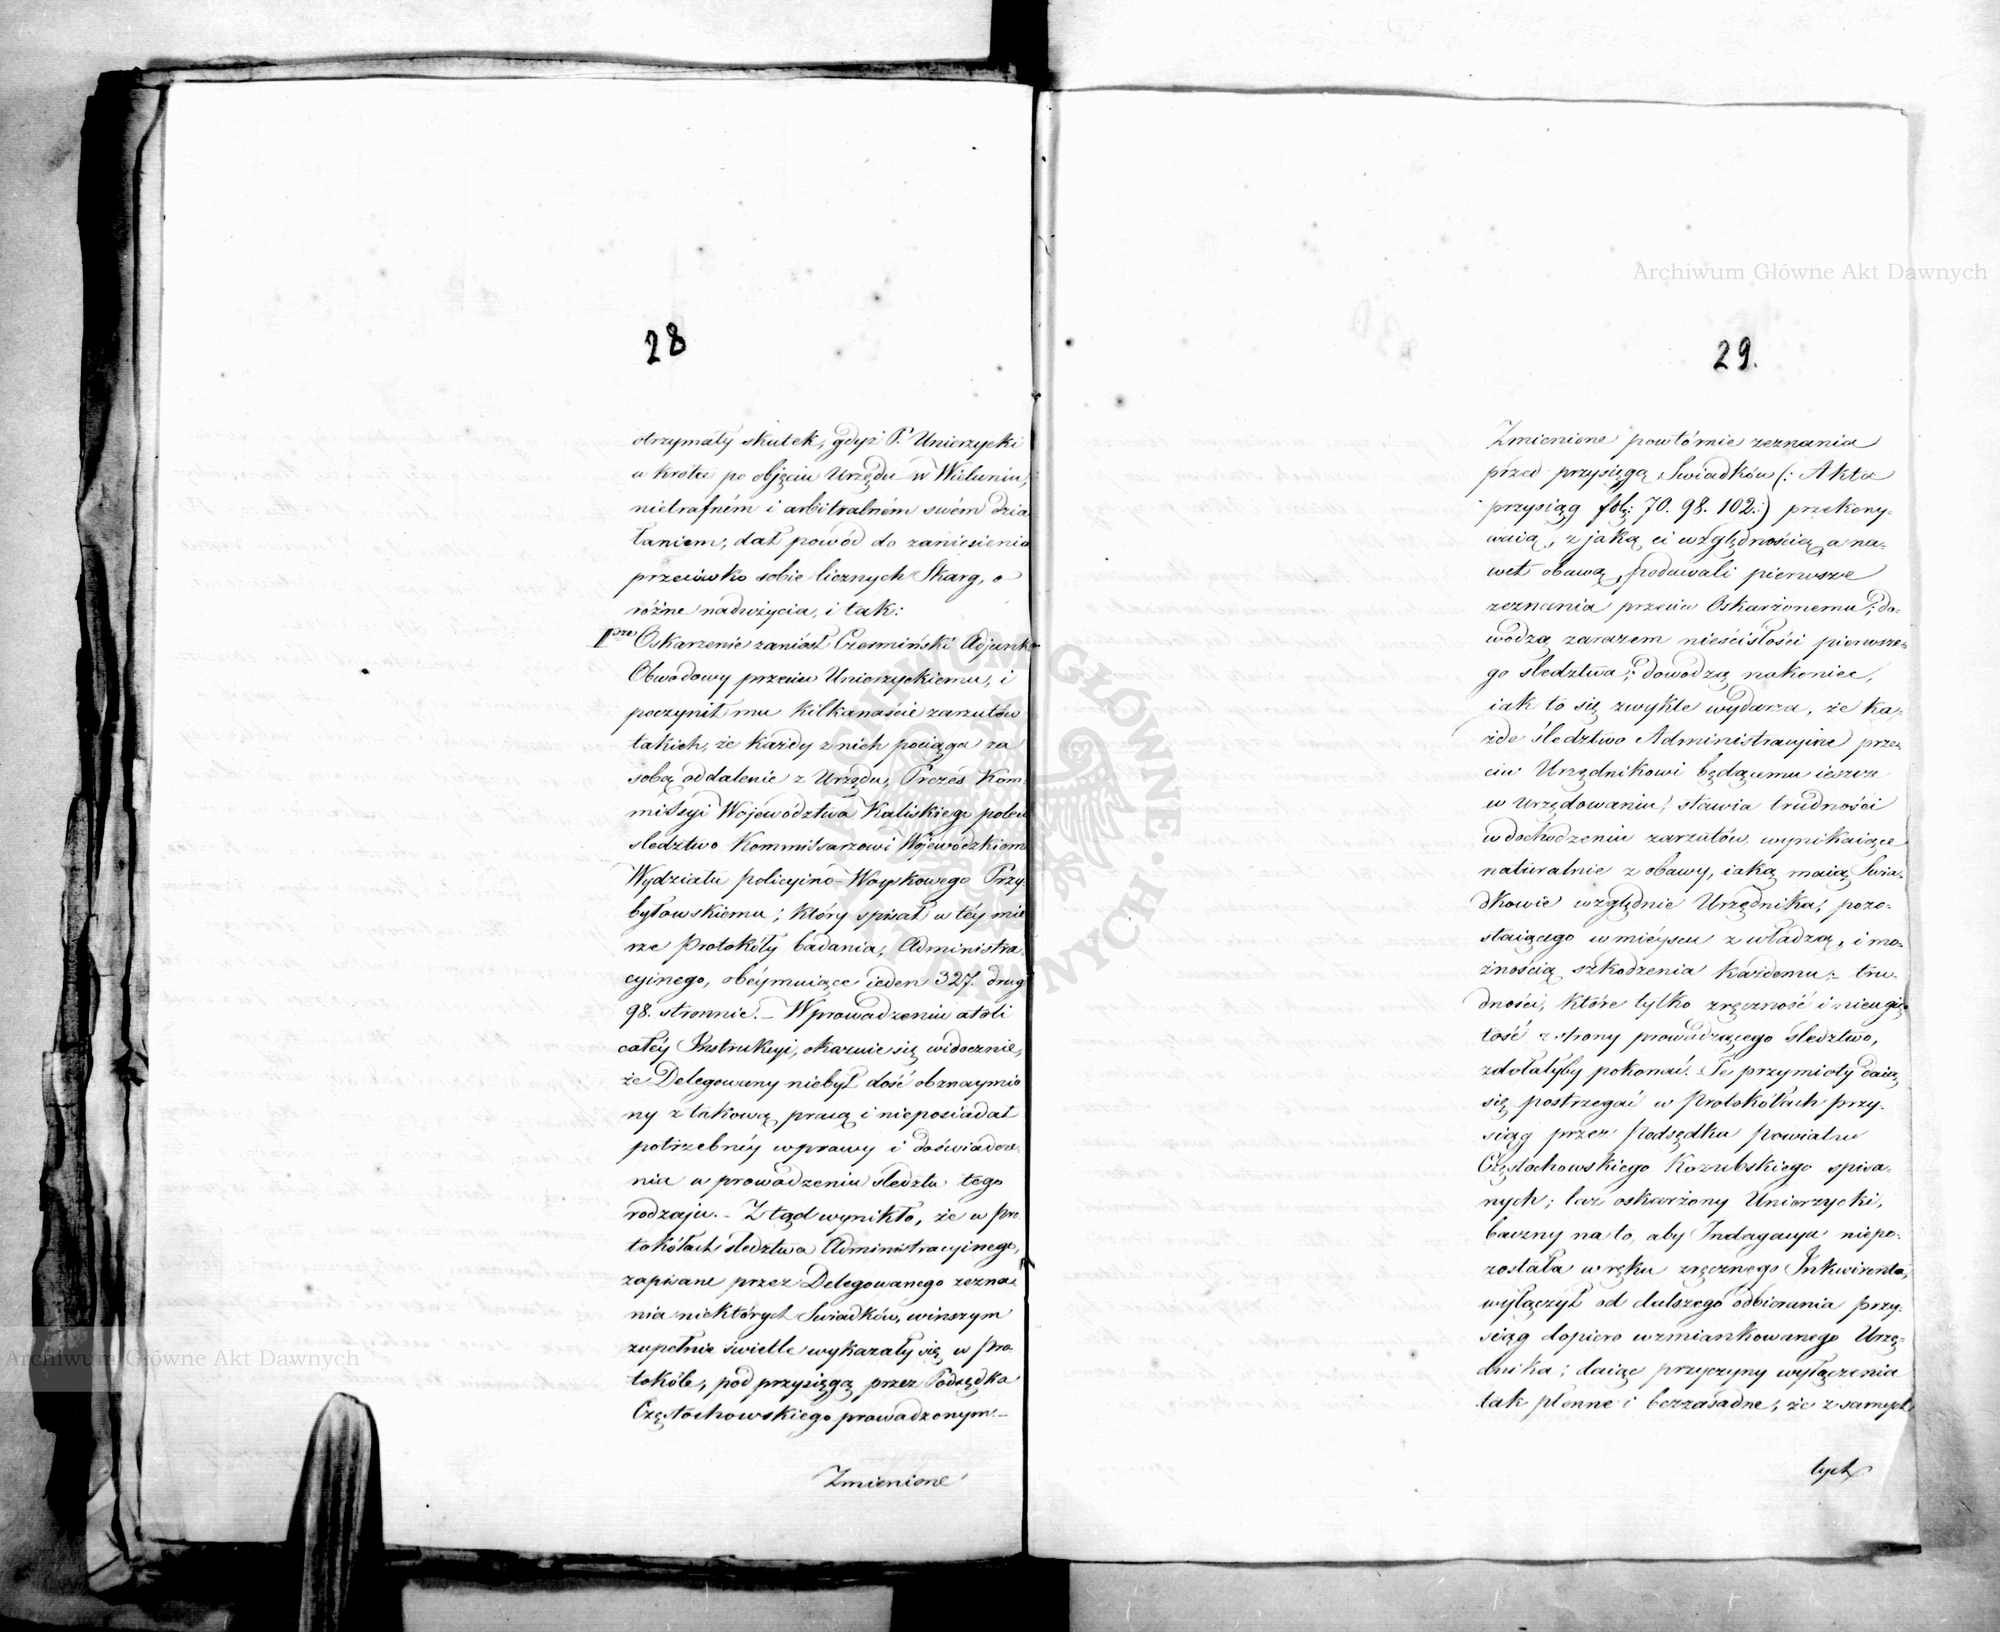 28
otrzymały skutek, gdyż P. Unierzycki
w krotce po objęciu Urzędu w Wieluniu,
nietrafném i arbitralném swém dzia
łaniem, dał powód do zaniesienia
przeciwko sobie licznych Skarg, o
różne nadużycia, i tak:
I<sup>sze</sup> Oskarzenie zaniósł Czermiński Adjunkt
Obwodowy przeciw Unierzyckiemu, i
poczynił mu kilkanaście zarzutów
takich, że każdy z nich pociąga za
sobą oddalenie z Urzędu, Prezes Kom
missyi Województwa Kaliskiego polecił
sledztwo Kommissarzowi Wojewódzkiem
Wydziału policyino-Woyskowego Przy
byłowskiemu; który spisał w téy mie
rze Protokóły badania, Administra
cyjnego, obéymuiące ieden 327. drugi
98. stronnic. – W prowadzeniu atoli
całéy Instrukcyi, okazuie się widocznie,
że Delegowany niebył dość obznaymio
ny z takową pracą i nieposiadał
potrzebnéy wprawy i doświadcze-
nia w prowadzeniu śledztw tego
rodzaju. – Ztąd wynikło, że w Pro
tokółach śledztwa Administracyinego,
zapisane przez Delegowanego zezna-
nia niektórych Swiadków, w inszym
zupełnie świetle wykazały się w Pro-
tokóle, pod przysięgą przez Podsędka
Częstochowskiego prowadzonym. –
Zmienione
29.
Zmienione powtórnie zeznania
przed przysięgą Swiadków (: Akta
przysiąg fol: 70. 98. 102:) przekony-
waią, z jaką ci względnością, a na-
wet obawą, podawali pierwsze
zeznania przeciw Oskarżonemu; do-
wodzą zarazem nieścisłości pierwsze-
go śledztwa; dowodzą nakoniec,
iak to się zwykle wydarza, że ka-
żde śledztwo Administracyine prze-
ciw Urzędnikowi będącemu ieszcze
w urzędowaniu, stawia trudności
w dochodzeniu zarzutów, wynikaiące
naturalnie z obawy, iaką maią Świa-
dkowie względnie Urzędnika, pozo-
staiącego w mieyscu z władzą, i mo-
żnością szkodzenia każdemu; tru-
dności, które tylko zręczność i nieugię
tość z strony prowadzącego śledztwo,
zdołałyby pokonać. Te przymioty daią
się postrzegać w Protokółach przy-
siąg przez Podsędka Powiatu
Częstochowskiego Kozubskiego spisa-
nych; lecz oskarżony Unierzycki,
baczny na to, aby Indagacya niepo-
została w ręku zręcznego Inkwirenta,
wyłączył od dalszego odbierania przy-
siąg dopiero wzmiankowanego Urzę-
dnika; daiąc przyczyny wyłączenia
tak płonne i bezzasadne, że z samych
tych
Archiwum Główne Akt Dawnych
Archiwum Główne Akt Dawnych